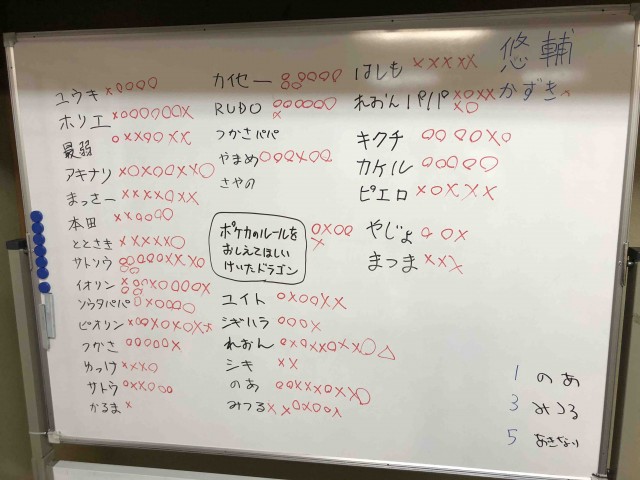 ユウキ ×○○○○
ホリエ ×○○○○○○×
最弱 ○××○○××
アキナリ ×○×○○××○
まっさー ××××○××
本田 ××○○○
ととさき ×××××○
サトソウ
イオリン
ソウタパパ ○×○○○○
ピオリン
つかさ ○○○○○×
ゆっけ ×××○
サトウ ○××○○○
かるま ×
カイセー
RUDO ○○○○○○ ×
つかさパパ
やまめ
さやの
ポケカのルールを ○×○○
おしえてほしい ×
けいたドラゴン
ユイト ○×○○××
シギハラ ○○○×
れおん
シキ ××
のあ
みつる
はしも ×××××
れおんパパ
キクチ ○○○○×○
カケル ○○○○○
ピエロ ×○×××
やじょ ○○×
まつま ×××
悠輔
かずき
1 のあ
3 みつる
5 あきなり